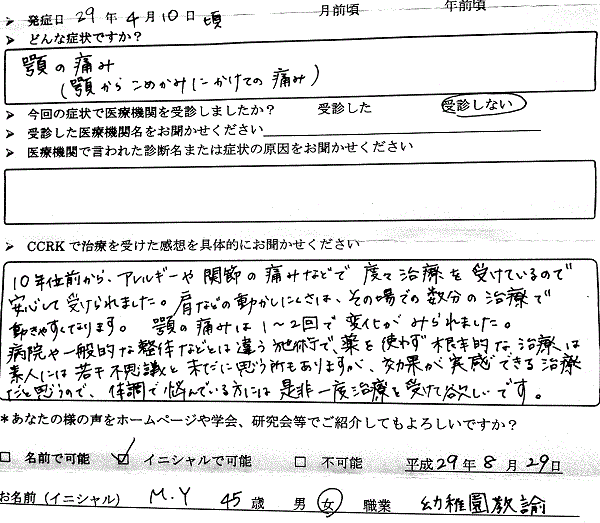 ➢ 発症日 29 年 4 月 10 日 頃 月前頃 年前頃
➢ どんな症状ですか？
顎の痛み
(顎からこめかみにかけての痛み)
➢ 今回の症状で医療機関を受診しましたか？ 受診した 受診しない
➢ 受診した医療機関名をお聞かせください
➢ 医療機関で言われた診断名または症状の原因をお聞かせください
➢ CCRKで治療を受けた感想を具体的にお聞かせください
10年位前から、アレルギーや関節の痛みなどで度々治療を受けているので
安心して受けられました。肩などの動かしにくさは、その場での数分の治療で
動きやすくなります。 顎の痛みは1～2回で変化がみられました。
病院や一般的な整体などとは違う施術で、薬を使わず根本的な治療は
素人には若干不思議と未だに思う所もありますが、効果が実感できる治療
だと思うので、体調で悩んでいる方には是非一度治療を受けて欲しいです。
*あなたの様の声をホームページや学会、研究会等でご紹介してもよろしいですか？
□ 名前で可能 ☑ イニシャルで可能 □ 不可能 平成29年8月29日
お名前（イニシャル） M.Y 45歳 男 女 職業 幼稚園教諭